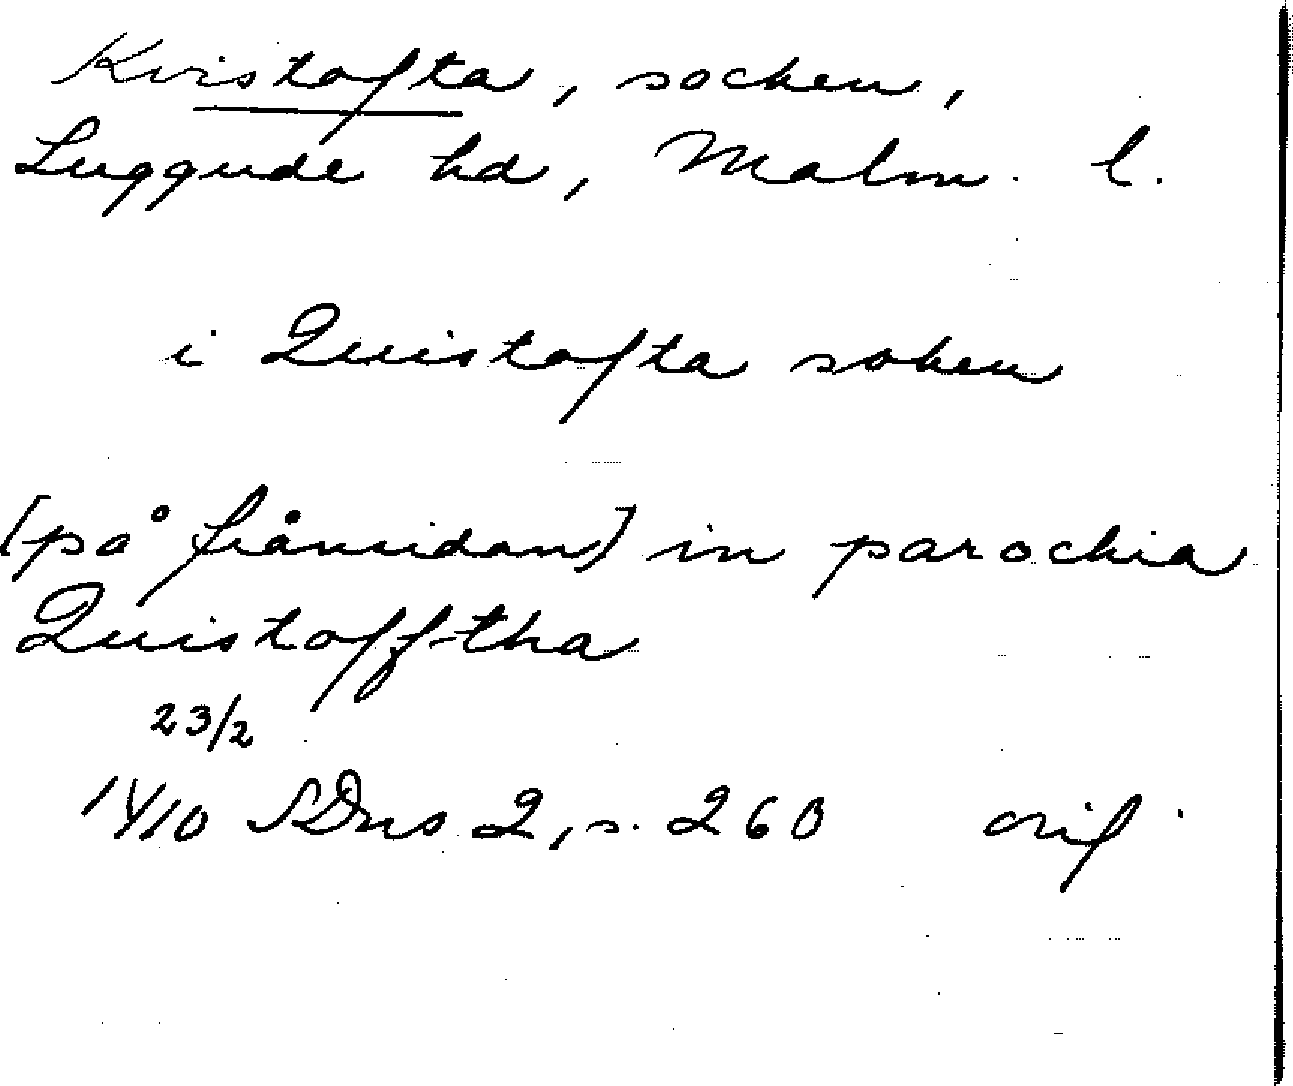 Kvistofta, socken,
Luggude hd, Malm. l.
i Quistofta soken
[på frånsidan] in parochia
Quistofftha
23/2
1410 SDns 2, s. 260 orig.